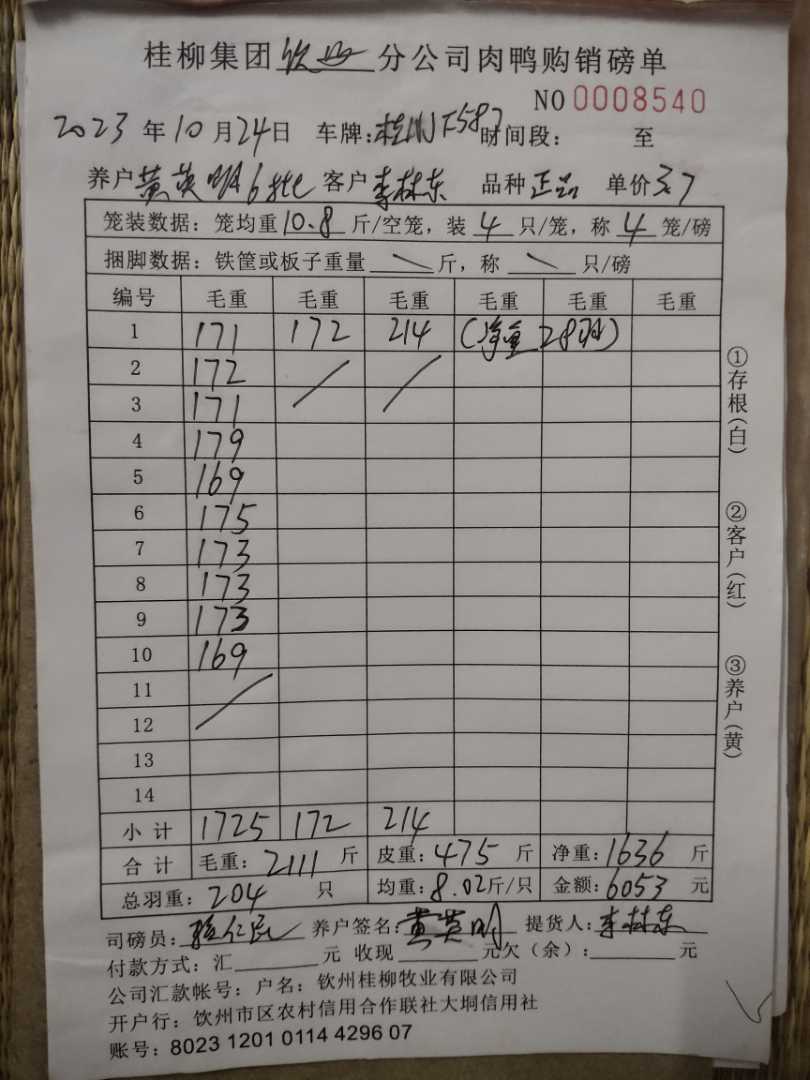 桂柳集团钦州分公司肉鸭购销磅单
NO 0008540
2023年10月24日 车牌: 时间段: 至
养户黄英明6批 客户李林东 品种正品 单价3.7
笼装数据: 笼均重10.8斤/空笼, 装4只/笼, 称4笼/磅
捆脚数据: 铁筐或板子重量\斤, 称\只/磅
编号 毛重 毛重 毛重 毛重 毛重 毛重
1 171 172 214 (净重28羽)
2 172
3 171
4 179
5 169
6 175
7 173
8 173
9 173
10 169
11
12
13
14
小计 1725 172 214
合计 毛重: 2111斤 皮重: 475斤 净重: 1636斤
总羽重: 204只 均重: 8.02斤/只 金额: 6053元
司磅员: 养户签名: 黄英明 提货人: 李林东
付款方式: 汇 元 收现 元欠(余): 元
公司汇款帐号: 户名: 钦州桂柳牧业有限公司
开户行: 钦州市区农村信用合作联社大垌信用社
账号: 8023 1201 0114 4296 07
①存根(白)
②客户(红)
③养户(黄)